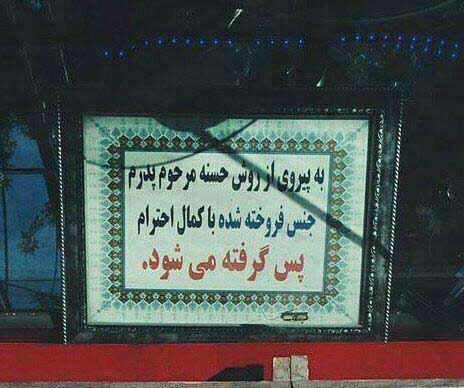 به پیروی از روش حسنه مرحوم پدرم
جنس فروخته شده با کمال احترام
پس گرفته می شود.